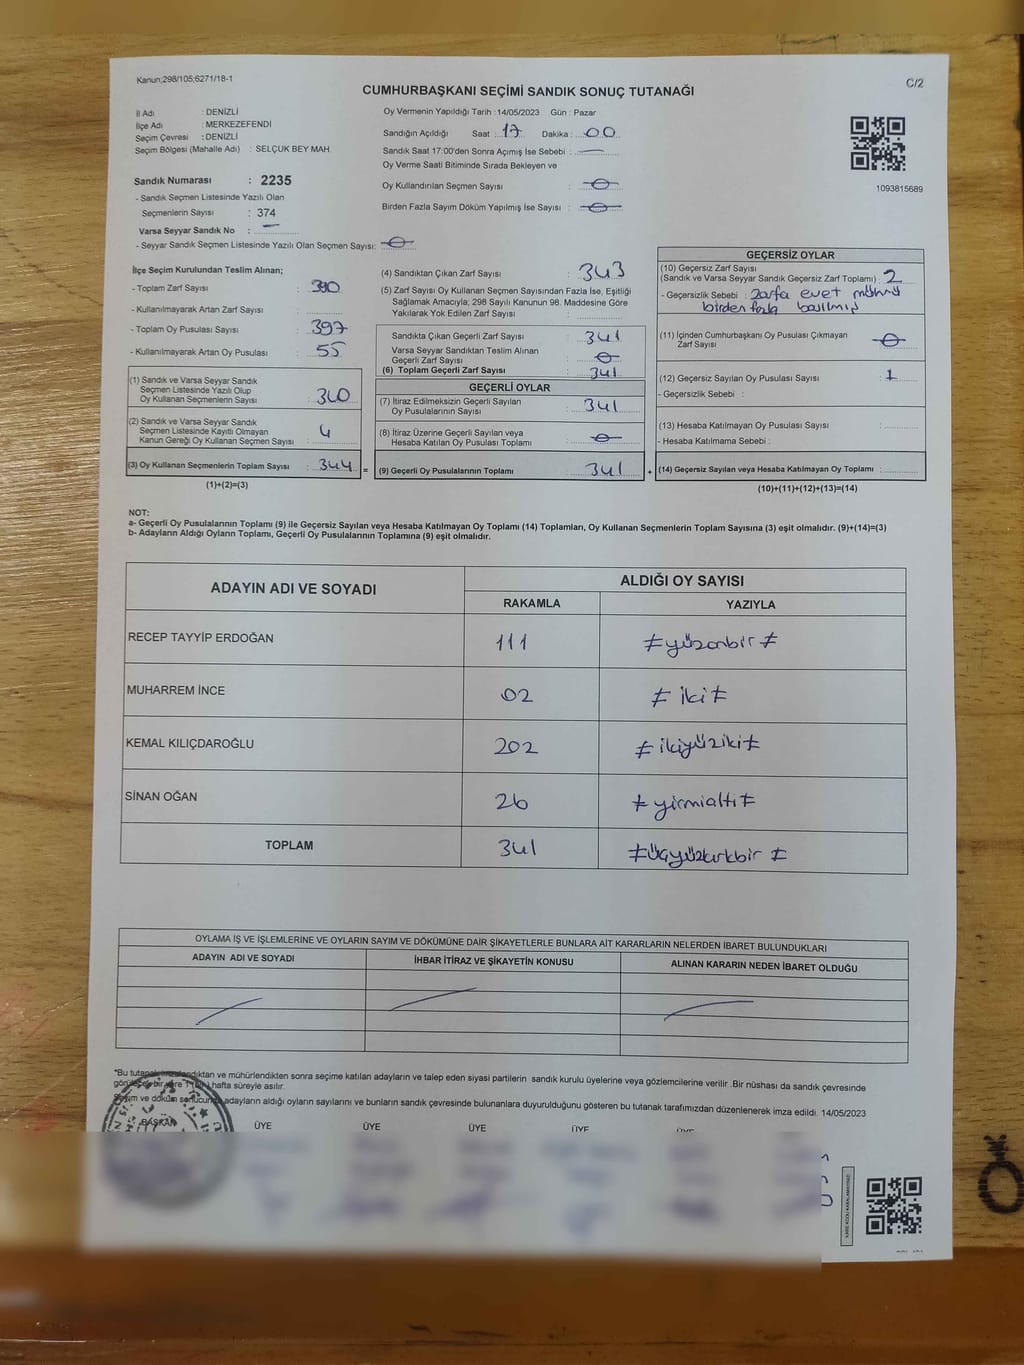 Kanun;298/105;6271/18-1
C/2
CUMHURBAŞKANI SEÇİMİ SANDIK SONUÇ TUTANAĞI
İl Adı : DENİZLİ
İlçe Adı : MERKEZEFENDİ
Seçim Çevresi : DENİZLİ
Seçim Bölgesi (Mahalle Adı) : SELÇUK BEY MAH.
Sandık Numarası : 2235
- Sandık Seçmen Listesinde Yazılı Olan
Seçmenlerin Sayısı : 374
Varsa Seyyar Sandık No : —
- Seyyar Sandık Seçmen Listesinde Yazılı Olan Seçmen Sayısı: 0
Oy Vermenin Yapıldığı Tarih : 14/05/2023 Gün : Pazar
Sandığın Açıldığı Saat : 17 Dakika : 00
Sandık Saat 17:00'den Sonra Açımış İse Sebebi : —
Oy Verme Saati Bitiminde Sırada Bekleyen ve
Oy Kullandırılan Seçmen Sayısı : 0
Birden Fazla Sayım Döküm Yapılmış İse Sayısı : 0
1093815689
İlçe Seçim Kurulundan Teslim Alınan;
- Toplam Zarf Sayısı : 390
- Kullanılmayarak Artan Zarf Sayısı :
- Toplam Oy Pusulası Sayısı : 397
- Kullanılmayarak Artan Oy Pusulası : 55
(1) Sandık ve Varsa Seyyar Sandık
Seçmen Listesinde Yazılı Olup
Oy Kullanan Seçmenlerin Sayısı : 340
(2) Sandık ve Varsa Seyyar Sandık
Seçmen Listesinde Kayıtlı Olmayan
Kanun Gereği Oy Kullanan Seçmen Sayısı : 4
(3) Oy Kullanan Seçmenlerin Toplam Sayısı : 344 =
(1)+(2)=(3)
(4) Sandıktan Çıkan Zarf Sayısı : 343
(5) Zarf Sayısı Oy Kullanan Seçmen Sayısından Fazla İse, Eşitliği
Sağlamak Amacıyla; 298 Sayılı Kanunun 98. Maddesine Göre
Yakılarak Yok Edilen Zarf Sayısı :
Sandıkta Çıkan Geçerli Zarf Sayısı : 341
Varsa Seyyar Sandıktan Teslim Alınan
Geçerli Zarf Sayısı : 0
(6) Toplam Geçerli Zarf Sayısı : 341
GEÇERLİ OYLAR
(7) İtiraz Edilmeksizin Geçerli Sayılan
Oy Pusulalarının Sayısı : 341
(8) İtiraz Üzerine Geçerli Sayılan veya
Hesaba Katılan Oy Pusulası Toplamı : 0
(9) Geçerli Oy Pusulalarının Toplamı : 341 +
GEÇERSİZ OYLAR
(10) Geçersiz Zarf Sayısı
(Sandık ve Varsa Seyyar Sandık Geçersiz Zarf Toplamı) : 2
- Geçersizlik Sebebi : zarfa evet mührü
birden fazla basılmış
(11) İçinden Cumhurbaşkanı Oy Pusulası Çıkmayan
Zarf Sayısı : 0
(12) Geçersiz Sayılan Oy Pusulası Sayısı : 1
- Geçersizlik Sebebi :
(13) Hesaba Katılmayan Oy Pusulası Sayısı :
- Hesaba Katılmama Sebebi :
(14) Geçersiz Sayılan veya Hesaba Katılmayan Oy Toplamı :
(10)+(11)+(12)+(13)=(14)
NOT:
a- Geçerli Oy Pusulalarının Toplamı (9) ile Geçersiz Sayılan veya Hesaba Katılmayan Oy Toplamı (14) Toplamları, Oy Kullanan Seçmenlerin Toplam Sayısına (3) eşit olmalıdır. (9)+(14)=(3)
b- Adayların Aldığı Oyların Toplamı, Geçerli Oy Pusulalarının Toplamına (9) eşit olmalıdır.
ADAYIN ADI VE SOYADI ALDIĞI OY SAYISI
RAKAMLA YAZIYLA
RECEP TAYYİP ERDOĞAN 111 ≠ yüzonbir ≠
MUHARREM İNCE 02 ≠ iki ≠
KEMAL KILIÇDAROĞLU 202 ≠ ikiyüziki ≠
SİNAN OĞAN 26 ≠ yirmialtı ≠
TOPLAM 341 ≠ üçyüzkırkbir ≠
OYLAMA İŞ VE İŞLEMLERİNE VE OYLARIN SAYIM VE DÖKÜMÜNE DAİR ŞİKAYETLERLE BUNLARA AİT KARARLARIN NELERDEN İBARET BULUNDUKLARI
ADAYIN ADI VE SOYADI İHBAR İTİRAZ VE ŞİKAYETİN KONUSU ALINAN KARARIN NEDEN İBARET OLDUĞU
*Bu tutanak imzalandıktan ve mühürlendikten sonra seçime katılan adayların ve talep eden siyasi partilerin sandık kurulu üyelerine veya gözlemcilerine verilir .Bir nüshası da sandık çevresinde
görülecek bir yere 1 (bir) hafta süreyle asılır.
Sayım ve döküm sonucunda adayların aldığı oyların sayılarını ve bunların sandık çevresinde bulunanlara duyurulduğunu gösteren bu tutanak tarafımızdan düzenlenerek imza edildi. 14/05/2023
BAŞKAN ÜYE ÜYE ÜYE ÜYE ÜYE